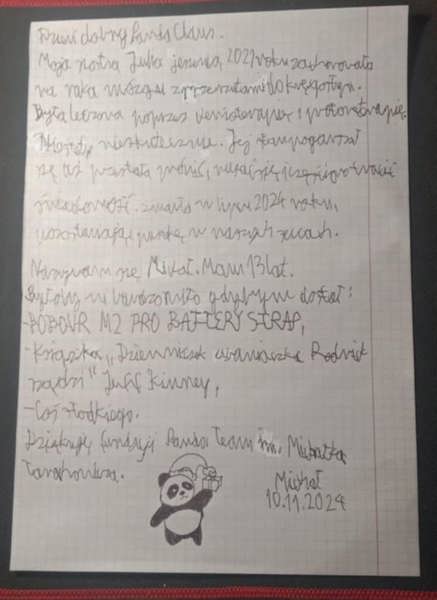 Dzień dobry Panda Claus.
Moja siostra Julka jesienią 2021 roku zachorowała
na raka mózgu z przerzutami do kręgosłupa.
Była leczona poprzez chemioterapię i protonoterapię.
Niestety nieskutecznie. Jej stan pogarszał
się aż przestała mówić, ruszać się, jeść i straciła
świadomość. zmarła w lipcu 2024 roku,
pozostawiając pustkę w naszych sercach.
Nazywam się Michał. Mam 13 lat.
Byłoby mi bardzo miło gdybym dostał:
-BOBOVR M2 PRO BATTERY STRAP,
-Książka „Dzienniczek cwaniaczka Rodrick
rządzi" Jeff Kinney,
-Coś słodkiego.
Dziękuję fundacji Panda Team im. Michałka
Michał
10.11.2024